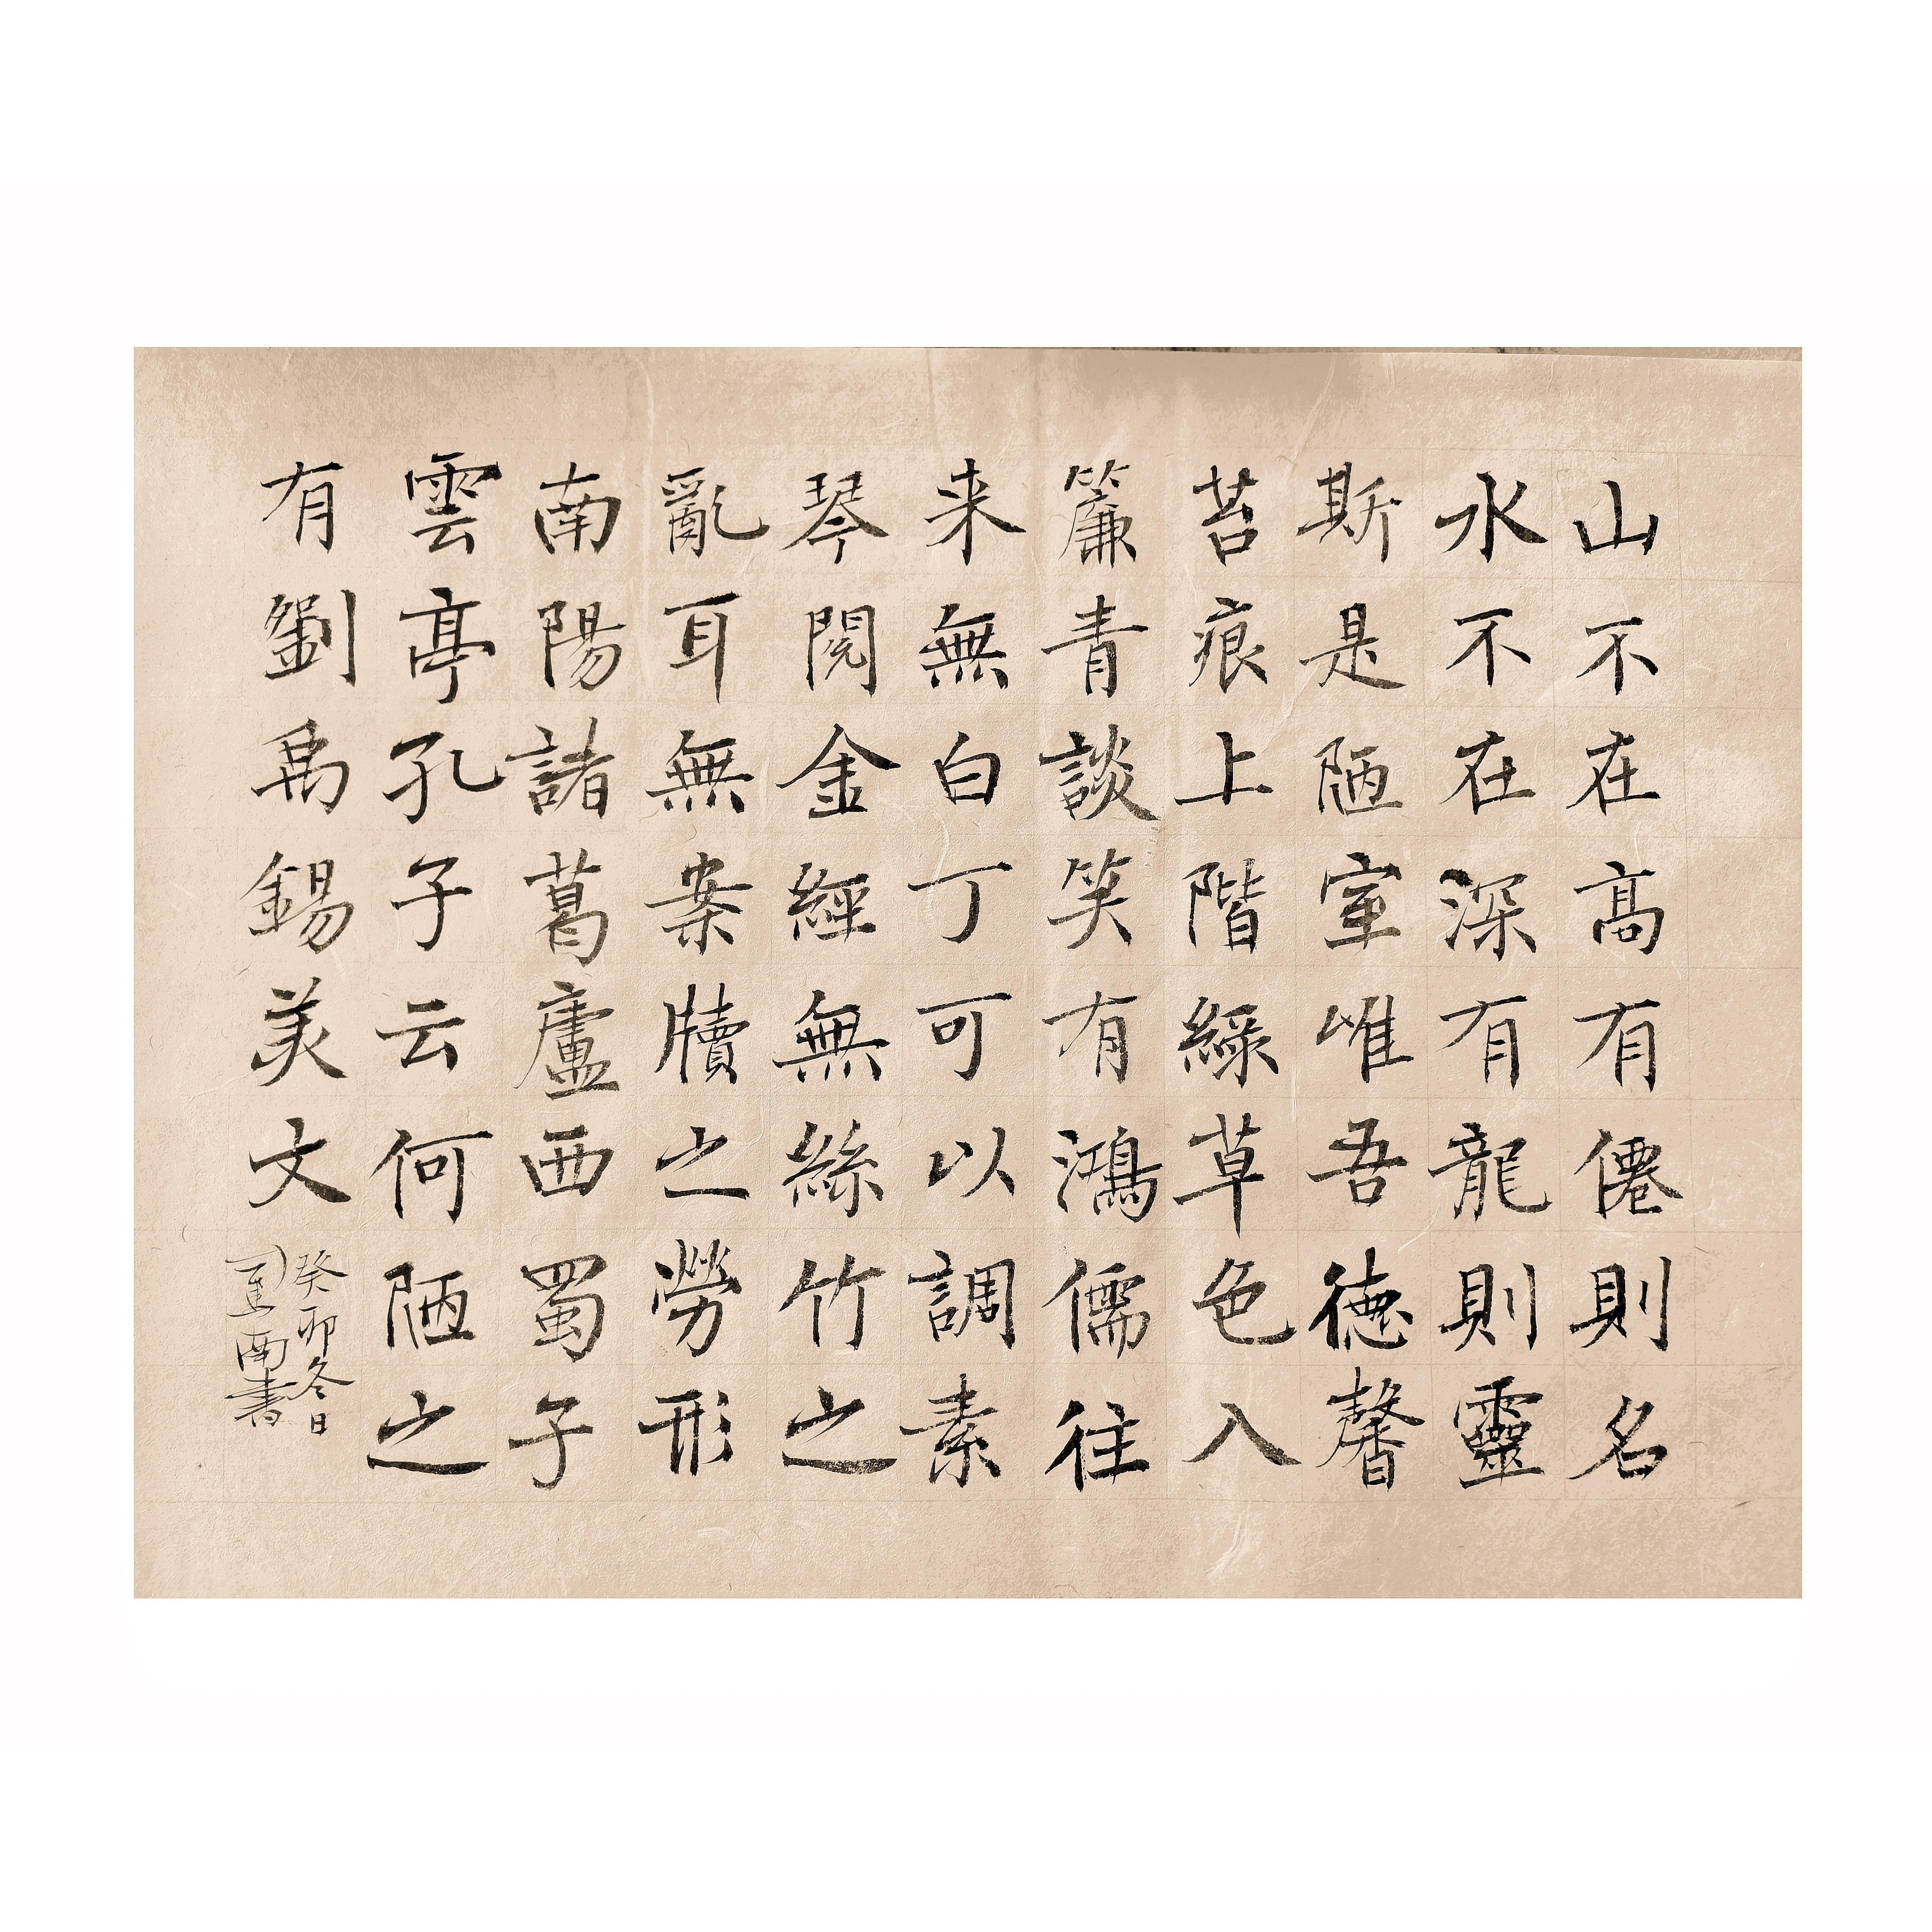 山不在高有僊則名
水不在深有龍則靈
斯是陋室唯吾德馨
苔痕上階綠草色入
簾青談笑有鴻儒往
来無白丁可以調素
琴閱金經無絲竹之
亂耳無案牘之勞形
南陽諸葛廬西蜀子
雲亭孔子云何陋之
有劉禹錫美文
癸卯冬日
南書